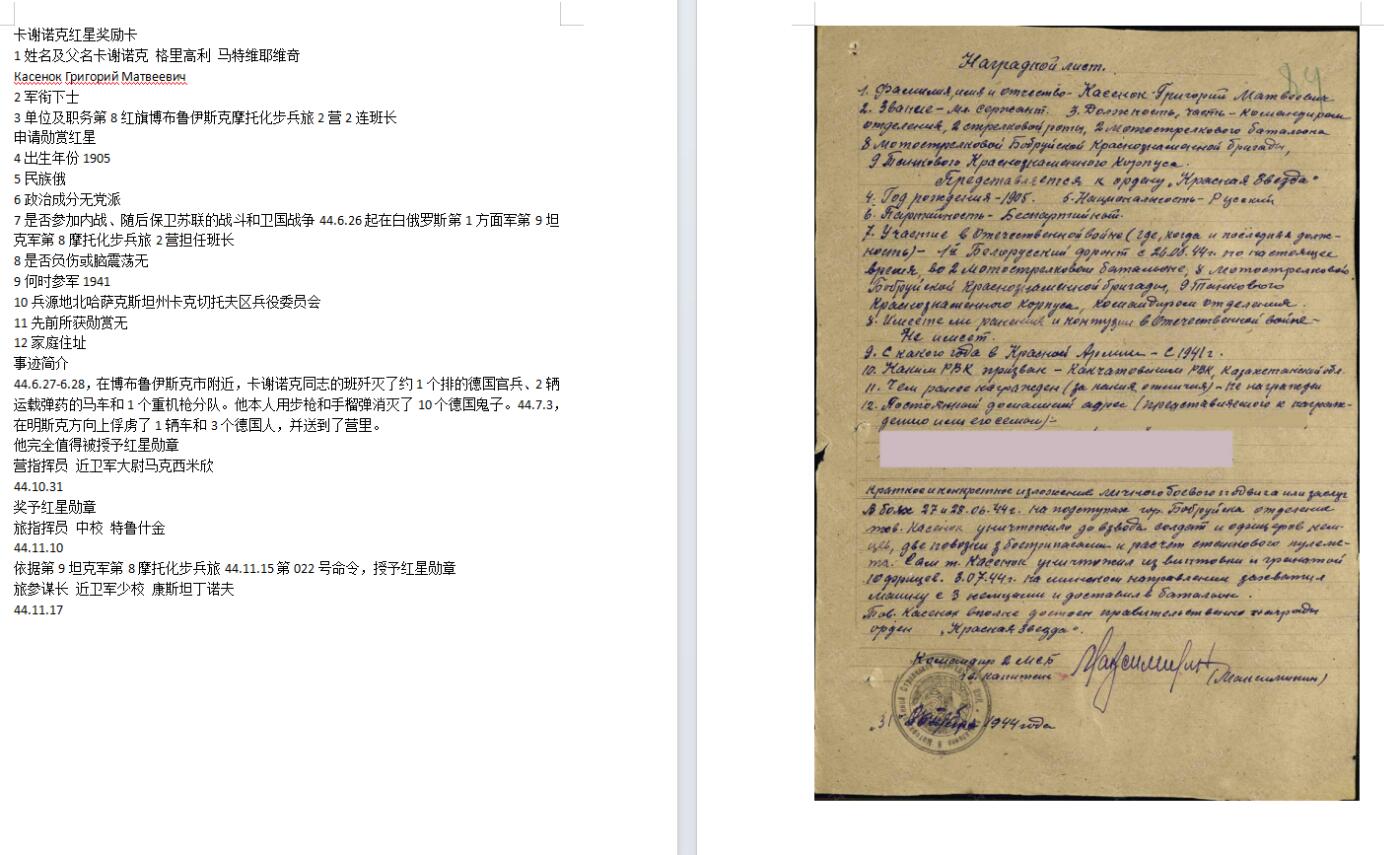 卡谢诺克红星奖励卡
1 姓名及父名卡谢诺克 格里高利 马特维耶维奇
Касенок Григорий Матвеевич
2 军衔下士
3 单位及职务第 8 红旗博布鲁伊斯克摩托化步兵旅 2 营 2 连班长
申请勋赏红星
4 出生年份 1905
5 民族俄
6 政治成分无党派
7 是否参加内战、随后保卫苏联的战斗和卫国战争 44.6.26 起在白俄罗斯第 1 方面军第 9 坦
克军第 8 摩托化步兵旅 2 营担任班长
8 是否负伤或脑震荡无
9 何时参军 1941
10 兵源地北哈萨克斯坦州卡克切托夫区兵役委员会
11 先前所获勋赏无
12 家庭住址
事迹简介
44.6.27-6.28，在博布鲁伊斯克市附近，卡谢诺克同志的班歼灭了约 1 个排的德国官兵、2 辆
运载弹药的马车和 1 个重机枪分队。他本人用步枪和手榴弹消灭了 10 个德国鬼子。44.7.3，
在明斯克方向上俘虏了 1 辆车和 3 个德国人，并送到了营里。
他完全值得被授予红星勋章
营指挥员 近卫军大尉马克西米欣
44.10.31
奖予红星勋章
旅指挥员 中校 特鲁什金
44.11.10
依据第 9 坦克军第 8 摩托化步兵旅 44.11.15 第 022 号命令，授予红星勋章
旅参谋长 近卫军少校 康斯坦丁诺夫
44.11.17
Наградной лист.
1. Фамилия, имя и отчество - Касенок Григорий Матвеевич
2. Звание - мл. сержант. 3. Должность, часть - командиром
отделения, 2 стрелковой роты, 2 мотострелкового батальона
8 мотострелковой Бобруйской Краснознаменной бригады,
9 Танкового Краснознаменного Корпуса.
Представляется к ордену "Красная Звезда"
4. Год рождения - 1905. 5. Национальность - Русский
6. Партийность - Беспартийный.
7. Участие в Отечественной войне (где, когда и последняя долж-
ность) - 1й Белорусский фронт с 26.06.44г. по настоящее
время, во 2 мотострелковом батальоне, 8 мотострелковой
Бобруйской Краснознаменной бригады, 9 Танкового
Краснознаменного Корпуса, командиром отделения.
8. Имеете ли ранения и контузии в Отечественной войне -
Не имеет.
9. С какого года в Красной Армии - с 1941г.
10. Каким РВК призван - Какчатовским РВК, Казахстанской обл.
11. Чем ранее награжден (за какия отличия) - Не награжден
12. Постоянный домашний адрес (представляемого к награж-
дению или его семьи):-
Краткое и конкретное изложение личного боевого подвига или заслуг
В боях 27 и 28.06.44г. на подступах гор. Бобруйска отделение
тов. Касенок уничтожило до взвода солдат и офицеров нем-
цев, две повозки з боеприпасами и расчет станкового пулеме-
та. Сам т. Касенок уничтожил из винтовки и гранатой
10 фрицев. 3.07.44г. на минском направлении захватил
машину с 3 немцами и доставил в батальон.
Тов. Касенок вполне достоин правительственной награды
орден "Красная Звезда".
Командир 2 МСБ
гв. капитан
(Максимихин)
"31 октября 1944 года